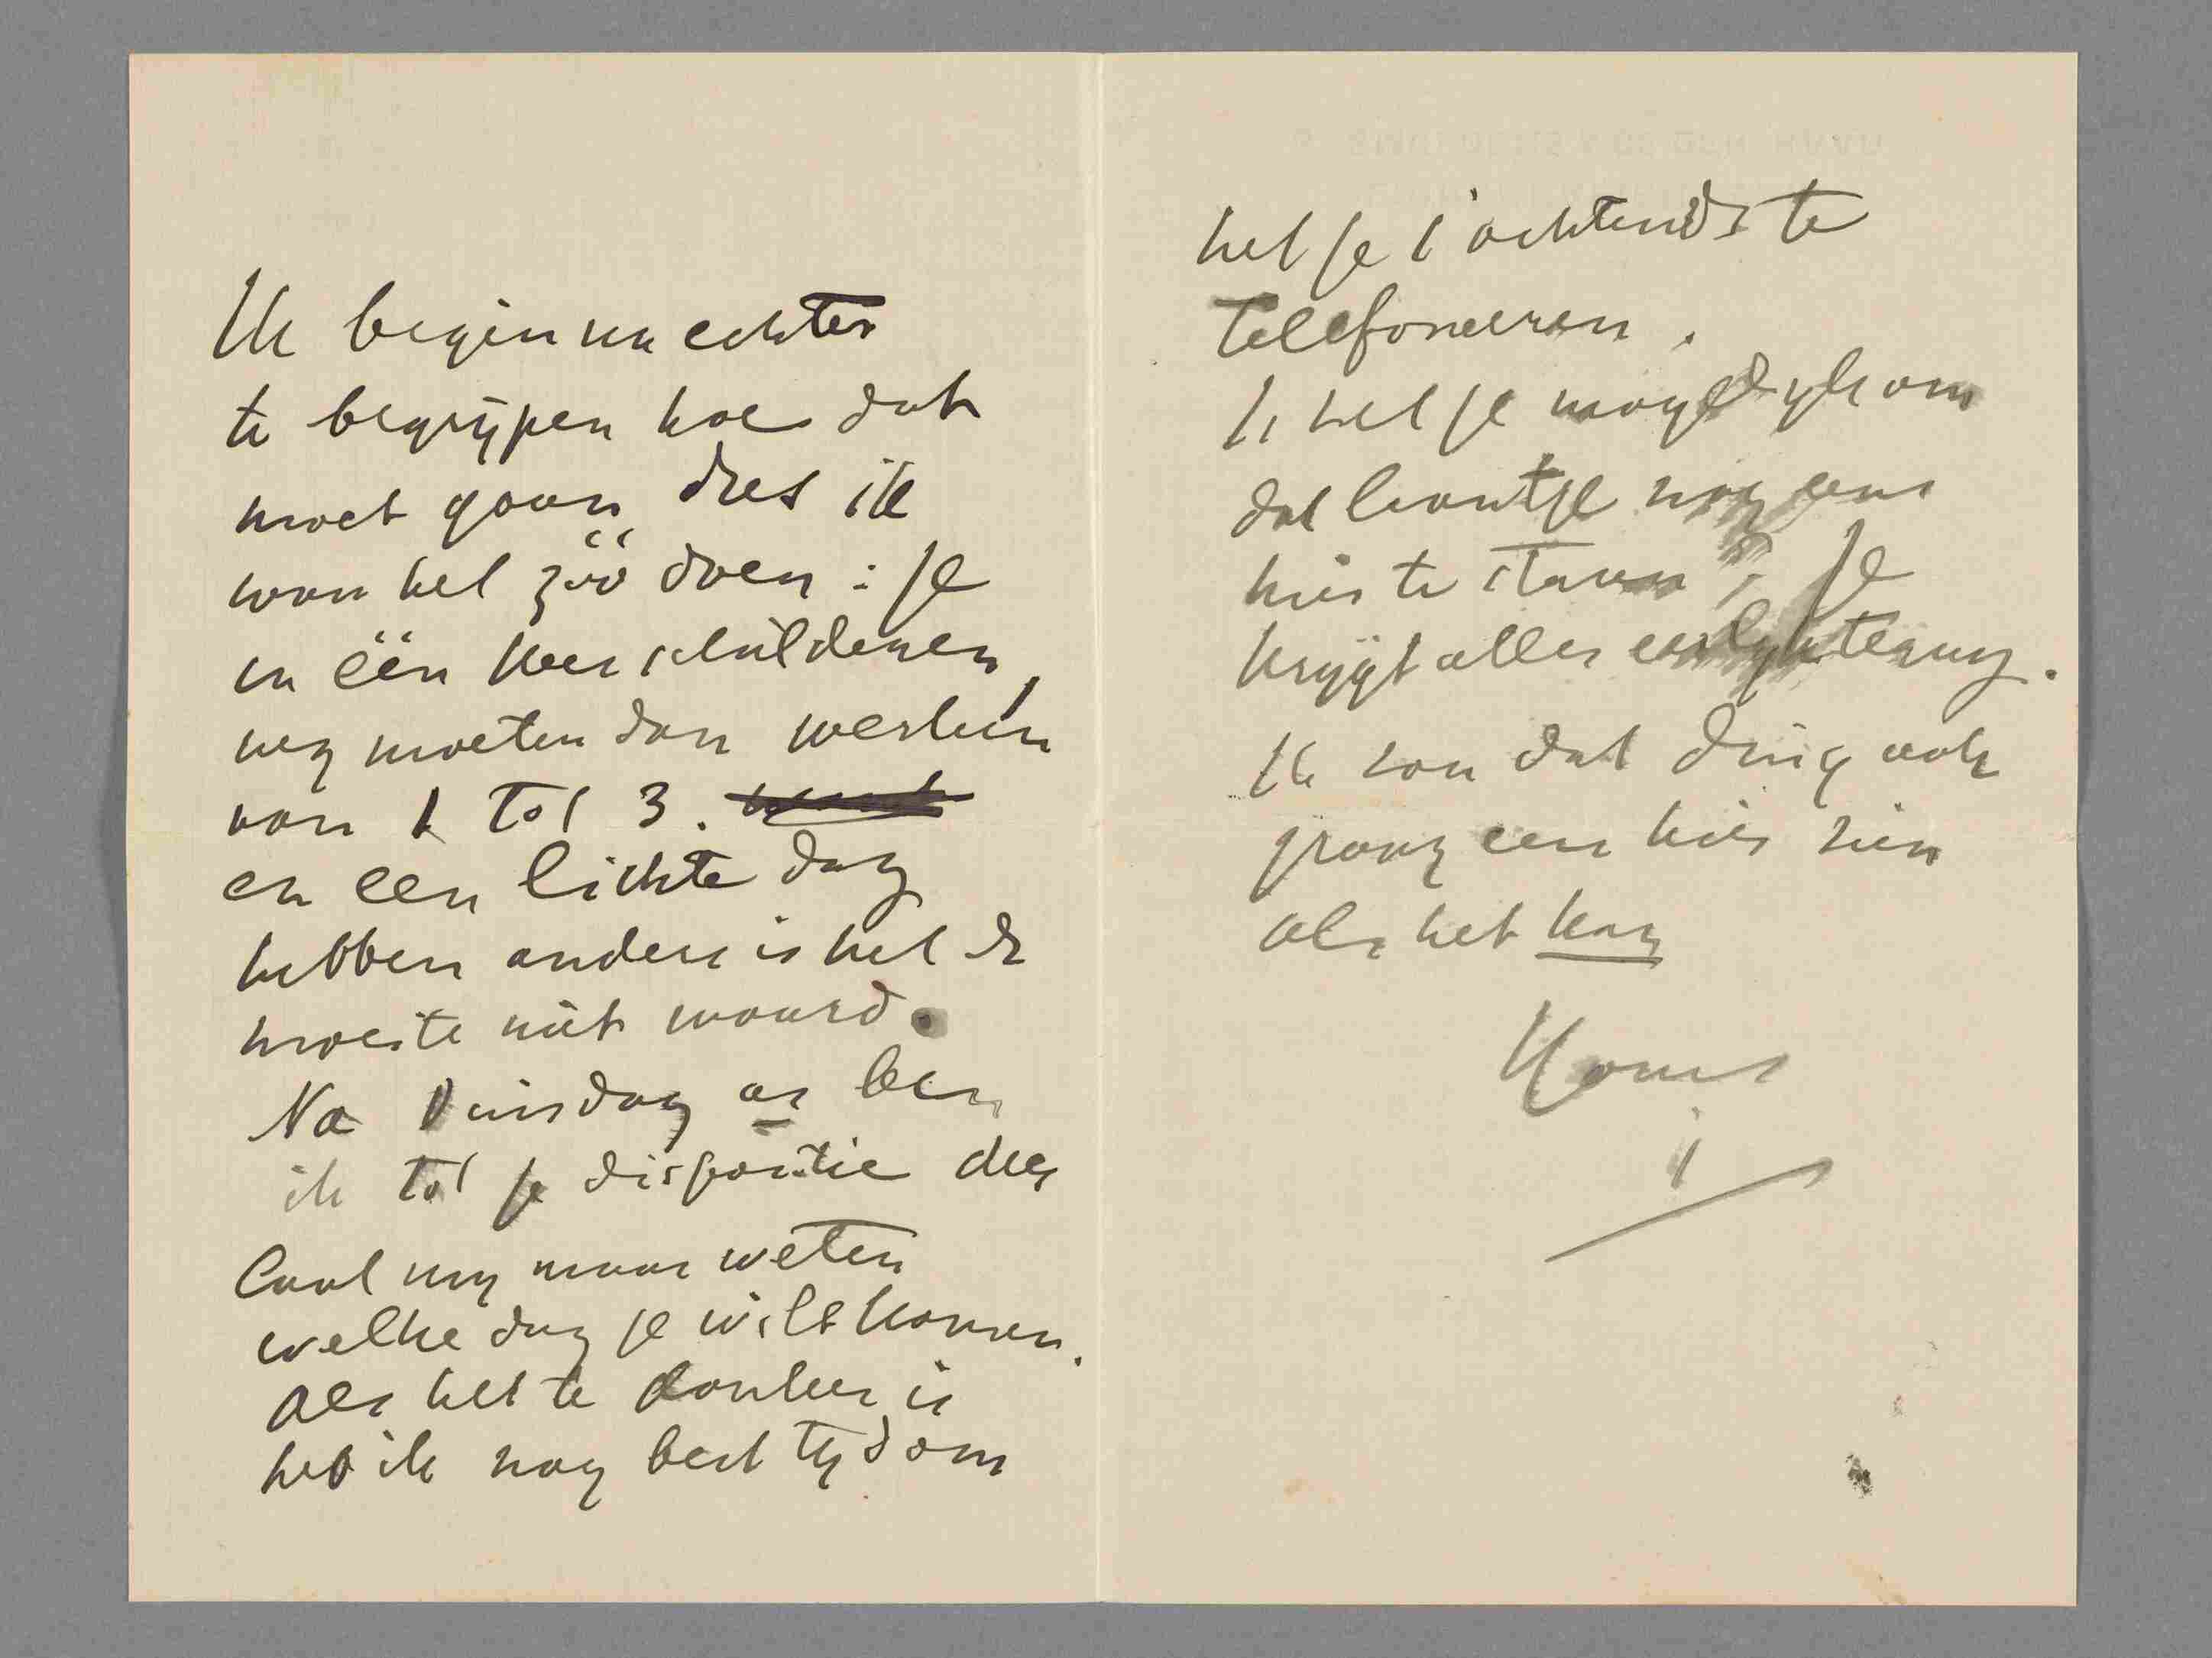 Ik begin nu echter
te begrijpen hoe dat
moet gaan, dus ik
wou het zóó doen: je
in één keer schilderen,
wy moeten dan werken
van 1 tot 3.
en een lichte dag
hebben anders is het de
moeite niet waard.
Na Dinsdag as ben
ik tot je dispositie dus
laat my maar weten
welke dag je wilt komen.
Als het te donker is
heb ik nog best tyd om
het je 's ochtends te
telefoneeren.
Is het je mogelyk om
dat krantje nog eens
hier te sturen, je
krygt alles eerlyk terug.
Ik zou dat ding ook
graag een hier zien
als het kan
Komst